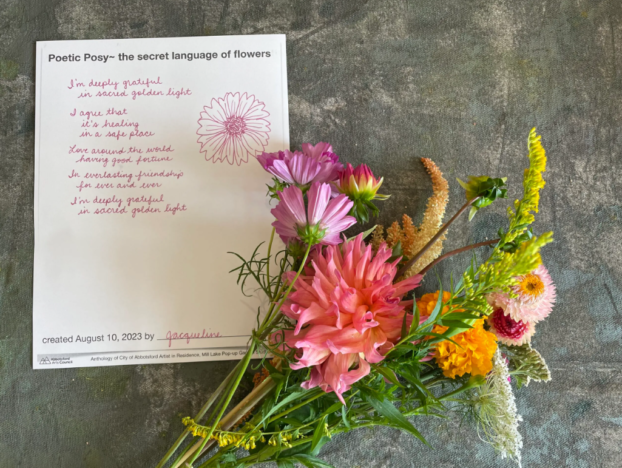 Poetic Posy~ the secret language of flowers
I'm deeply grateful
in sacred golden light
I agree that
it's healing
in a safe place
Love around the world
having good fortune
In everlasting friendship
for ever and ever
I'm deeply grateful
in sacred golden light
created August 10, 2023 by Jacqueline
Anthology of City of Abbotsford Artist in Residence, Mill Lake Pop-up